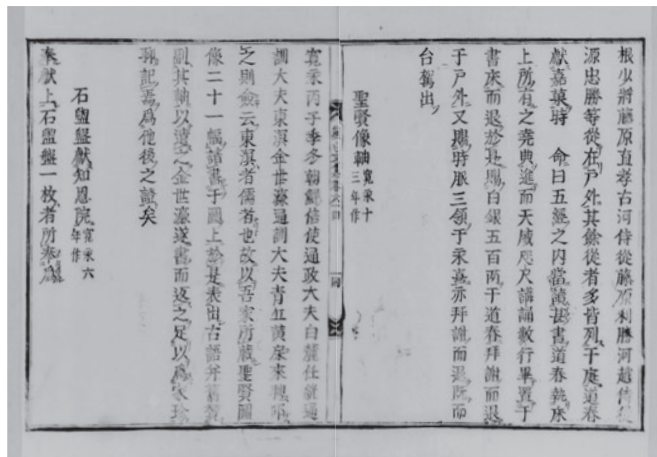 根少將藤原直孝右河侍從藤原利勝河越侍從
源忠勝等從在戶外其餘從者多皆列于庭道春
獻嘉菓時　命曰五經之內當讀甚書道春乾床
上所有之堯典進而天威咫尺講誦數行畢置于
書床而退於是賜白銀五百兩于道春拜謝而退
于戶外又賜時服三領于永喜亦拜謝而退既而
台駕出
聖賢像軸寬永十三年作
寬永丙子季冬朝鮮信使通政大夫白麓任絖通
訓大夫東溟金世濂通訓大夫青丘黃㦿來聘
之則僉云東溟者儒者也故以吾家所藏聖賢圖
像二十一幅請書于圖上於是表出古語并舊贊
副其軸以遣之金世濂遂書而返之足以為家珍
聊記焉為他後之證矣
石盥盤獻知恩院寬永六年作
奉獻上石盥盤一枚者所奉為